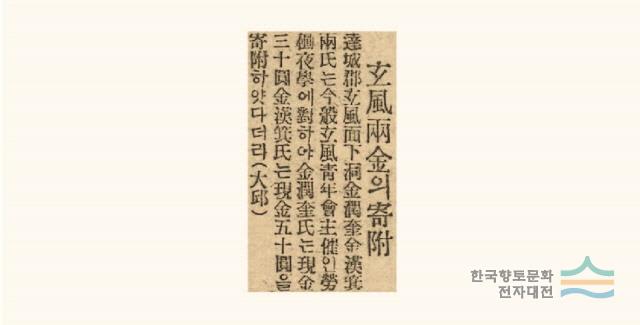 玄風兩金의寄附
達城郡玄風面下洞金潤奎金漢箕
兩氏는今般玄風靑年會主催인勞
働夜學에對하야金潤奎氏는現金
三十圓金漢箕氏는現金五十圓을
寄附하얏다더라(大邱)
한국향토문화
전자대전